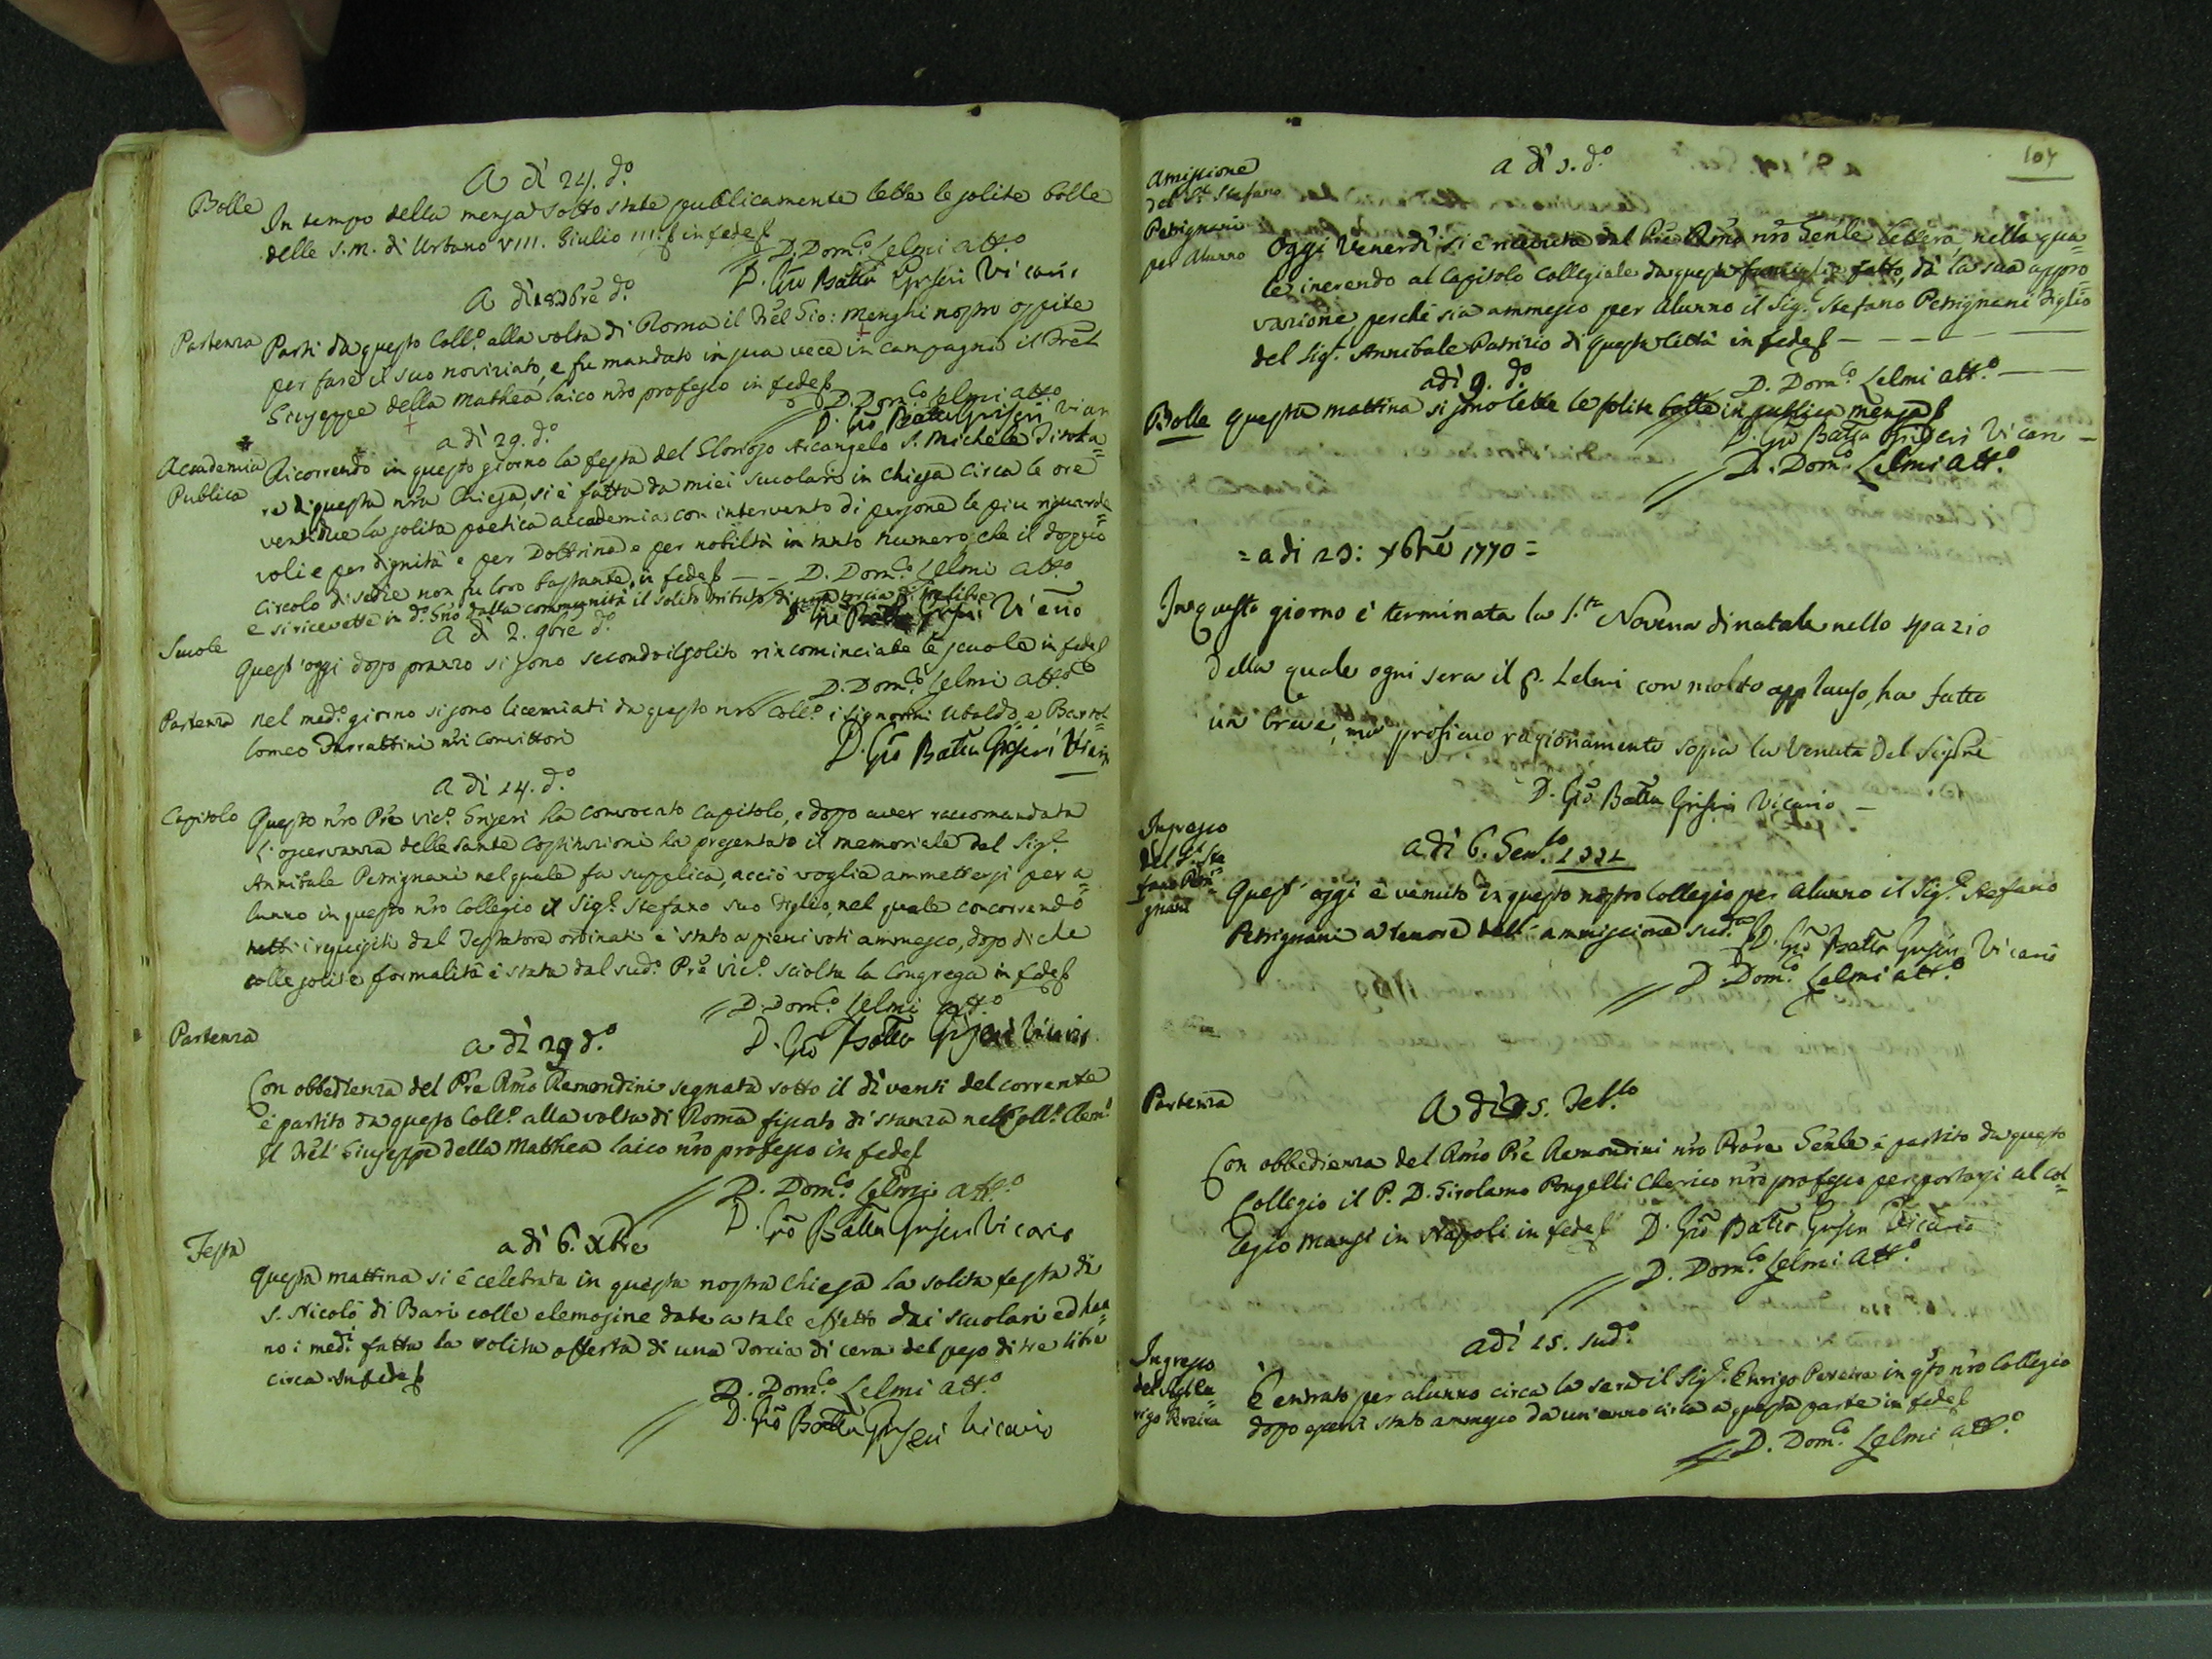 A dì 24. d.o
Bolle In tempo della mensa sotto state publicamente lette le solite bolle
delle S.M. di Urbano VIII. Giulio III. in fede
D. Dom.co Lelmi Att.o
D. Gio Batta Griseri Vicario
A dì 18 d.o
Partenza Partì da questo Coll.o alla volta di Roma il Frel Gio: Menghi nostro ospite
per fare il suo noviziato, e fu mandato in sua vece in compagnia il Frel
Giuseppe della Mathea laico nro professo in fede
D. Dom.co Lelmi att.o
D. Gio Batta Griseri Vicar
a dì 29. d.o
Academia Ricorrendo in questo giorno la festa del Glorioso Arcangelo S. Michele Titola=
Publica re di questa nra Chiesa, si è fatta da miei scuolari in chiesa circa le ore
ventidue la solita poetica accademia con intervento di persone le piu riguarde=
voli e per dignità e per Dottrina e per nobiltà in tanto numero, che il doppio
Circolo di sedie non fu loro bastante, in fede — — D. Dom.co Lelmi Att.o
e si ricevette in d.o Gno dalla communità il solito tributo di una torcia di tre libre
D. Gio Batta Griseri Vicario
A dì 2. 9bre d.o
Scuole Quest'oggi dopo pranzo si sono secondo il solito rincominciate le scuole in fede
D. Dom.co Lelmi Att.o
Partenza Nel med.o giorno si sono licenziati da questo nro Coll.o i Signorini Ubaldo, e Barto=
lomeo Farrattini nri Convittori
D. Gio Batta Griseri Vicario
A dì 14. d.o
Capitolo Questo nro Pre Vic.o Griseri ha convocato Capitolo, e dopo aver raccomandata
l'osservanza delle sante Costituzioni ha presentato il memoriale del Sig.r
Annibale Petrignani nel quale fa supplica, acciò voglia ammettersi per a=
lunno in questo nro Collegio il Sig.r Stefano suo Figlio, nel quale concorrendo
tutti i requisiti dal Testatore ordinati è stato a pieni voti ammesso, dopo di che
colle solite formalità è stata dal sud.o Pre Vic.o sciolta la Congrega in fede
D. Dom.co Lelmi att.o
D. Gio Batta Griseri Vicario
Partenza
a dì 29 d.o
Con obbedienza del Pre Rmo Remondini segnata sotto il dì venti del corrente
è partito da questo Coll.o alla volta di Roma fissato di stanza nel Coll.o Clem.o
Il Frel Giuseppe della Matthea laico nro professo in fede
D. Dom.co Lelmi att.o
D. Gio Batta Griseri Vicario
Festa
a dì 6. Xbre
Questa mattina si è celebrata in questa nostra Chiesa la solita festa di
S. Nicolò di Bari colle elemosine date a tale effetto dai scuolari ed han=
no i med.i fatta la solita offerta di una Torcia di cera del peso di tre libre
circa in fede
D. Dom.co Lelmi att.o
D. Gio Batta Griseri Vicario
107
a dì d.o
Amissione
del S.r Stefano
Petrignani
per Alunno Oggi Venerdì si è ricevuta dal Pre Rmo nro Gen.le lettera, nella qua=
le, inerendo al Capitolo Collegiale da questa famiglia fatto, dà la sua appro=
vazione, perchè sia ammesso per Alunno il Sig.r Stefano Petrignani Figlio
del Sig.r Annibale Patrizio di questa Città in fede — — — —
D. Dom.co Lelmi Att.o — —
adì 9. d.o
Bolle Questa mattina si sono lette le solite bolle in publica mensa
D. Gio Batta Griseri Vicario —
D. Dom.co Lelmi Att.o
= a di 23: Xbre 1770 =
In questo giorno è terminata la S.ta Novena di natale nello spazio
della quale ogni sera il P. Lelmi con molto applauso, ha fatto
un breve, ma proficuo ragionamento sopra la Venuta del Signore
D. Gio Batta Griseri Vicario —
Ingresso
del S.r Ste
fano Petri=
gnani
a dì 6. Gen.ro 1771
Quest'oggi è venuto in questo nostro Collegio per Alunno il Sig.r Stefano
Petrignani a tenore dell'ammissione sud.a
D. Gio Batta Griseri Vicario
D. Dom.co Lelmi att.o
Partenza
A dì 5. Feb.ro
Con obbedienza del Rmo Pre Remondini nro Prore Genle è partito da questo
Collegio il P. D. Girolamo Pongelli Chierico nro professo per portarsi al Col=
legio Mansi in Napoli in fede D. Gio Batta Griseri Vicario
D. Dom.co Lelmi Att.o
adì 15. sud.o
Ingresso
del Sig.r En=
rigo Pereira
È entrato per alunno circa la sera il Sig.r Enrigo Pereira in qsto nro Collegio
dopo essere stato ammesso da un anno circa a questa parte in fede
D. Dom.co Lelmi att.o